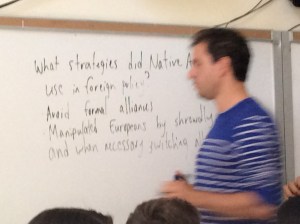 What strategies did Native A
use in foreign policy?
Avoid formal alliances
Manipulated Europeans by shrewdly
and when necessary switching all